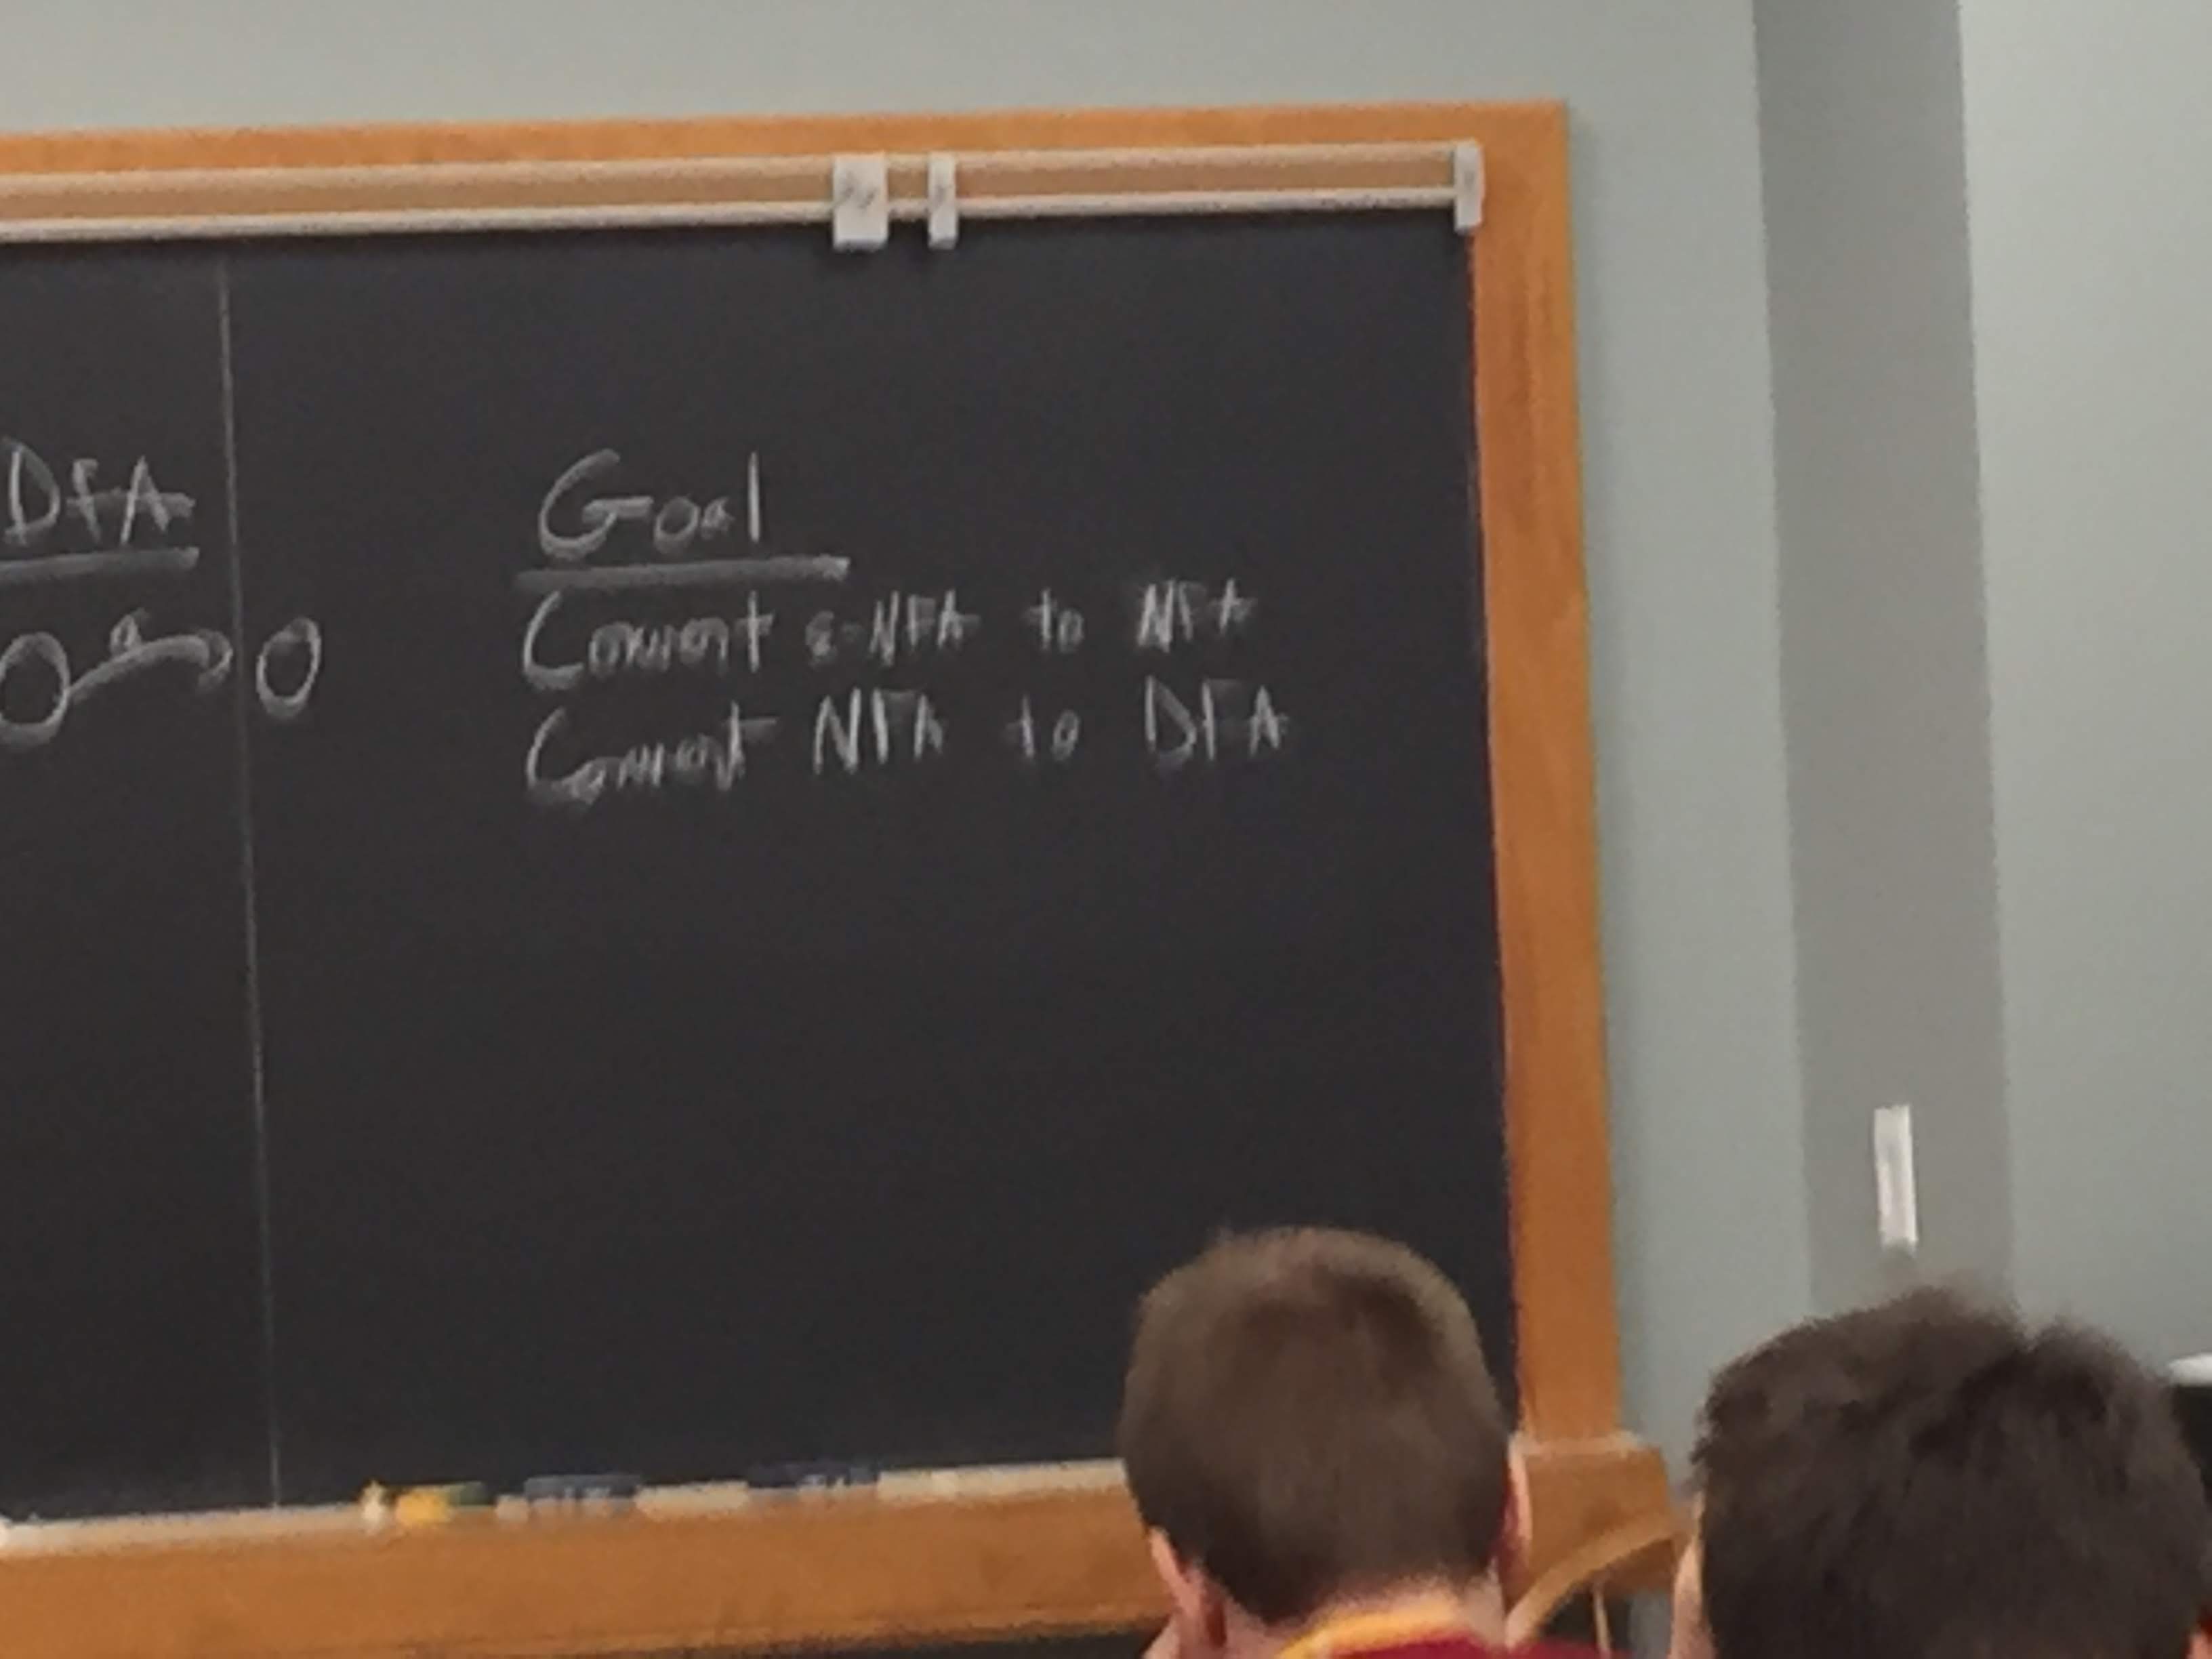 DFA
a
Goal
Convert ε-NFA to NFA
Convert NFA to DFA